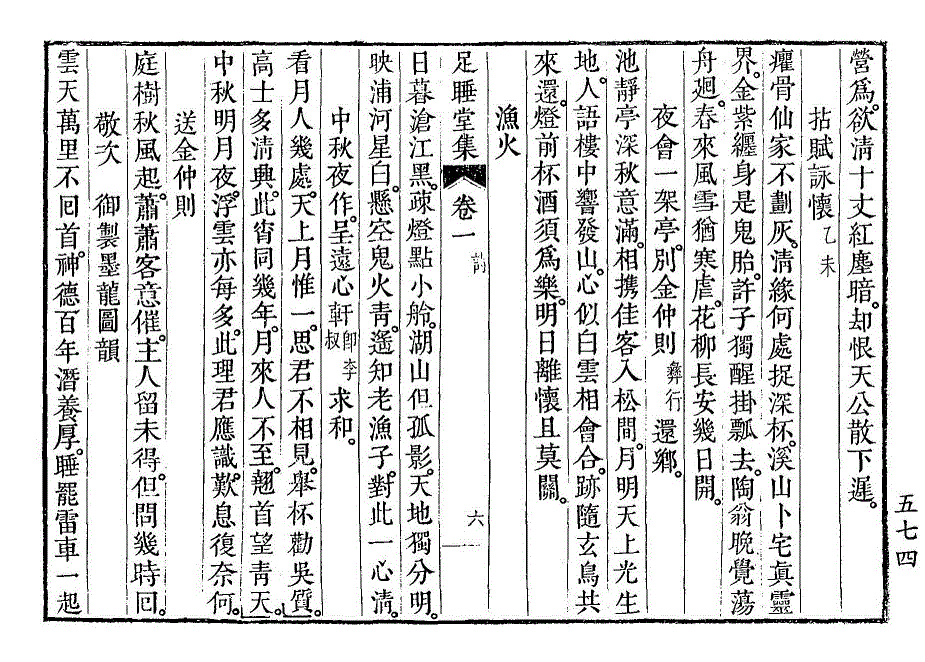 營爲。欲淸十丈紅塵暗。却恨天公散下遲。
拈賦詠懷 乙未
癯骨仙家不劃灰。淸緣何處捉深杯。溪山卜宅眞靈
界。金紫纏身是鬼胎。許子獨醒掛瓢去。陶翁晩覺蕩
舟廻。春來風雪猶寒虐。花柳長安幾日開。
夜會一架亭。別金仲則 彝行 還鄕。
池靜亭深秋意滿。相携佳客入松間。月明天上光生
地。人語樓中響發山。心似白雲相會合。跡隨玄鳥共
來還。燈前杯酒須爲樂。明日離懷且莫關。
漁火
足睡堂集 卷一 詩 六
日暮滄江黑。疎燈點小舲。湖山但孤影。天地獨分明。
映浦河星白。懸空鬼火靑。遙知老漁子。對此一心淸。
中秋夜作。呈遠心軒 卽李叔 求和。
看月人幾處。天上月惟一。思君不相見。擧杯勸吳質。
高士多淸興。此宵同幾年。月來人不至。翹首望靑天。
中秋明月夜。浮雲亦每多。此理君應識。歎息復奈何。
送金仲則
庭樹秋風起。蕭蕭客意催。主人留未得。但問幾時回。
敬次 御製墨龍圖韻
雲天萬里不回首。神德百年潛養厚。睡罷雷車一起
五七四